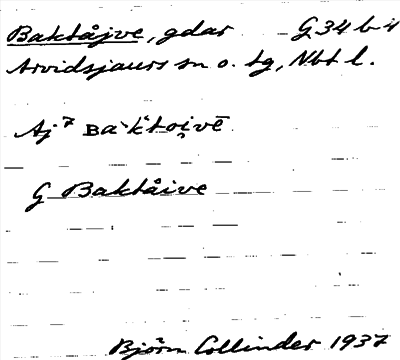 Baktåjve, gdar G34 b 4
Arvidsjaurs sn o. tg, Nbt l.
Aj⁷ ʙᴀˋk̀toi̭vē
G Baktåive
Björn Collinder 1937